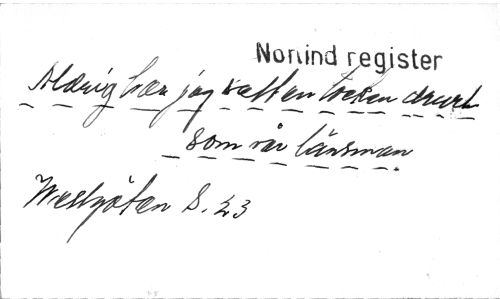 Norlind register
Aldrig har jag sett en tocken
som vår länsman
Westgöten S. 23